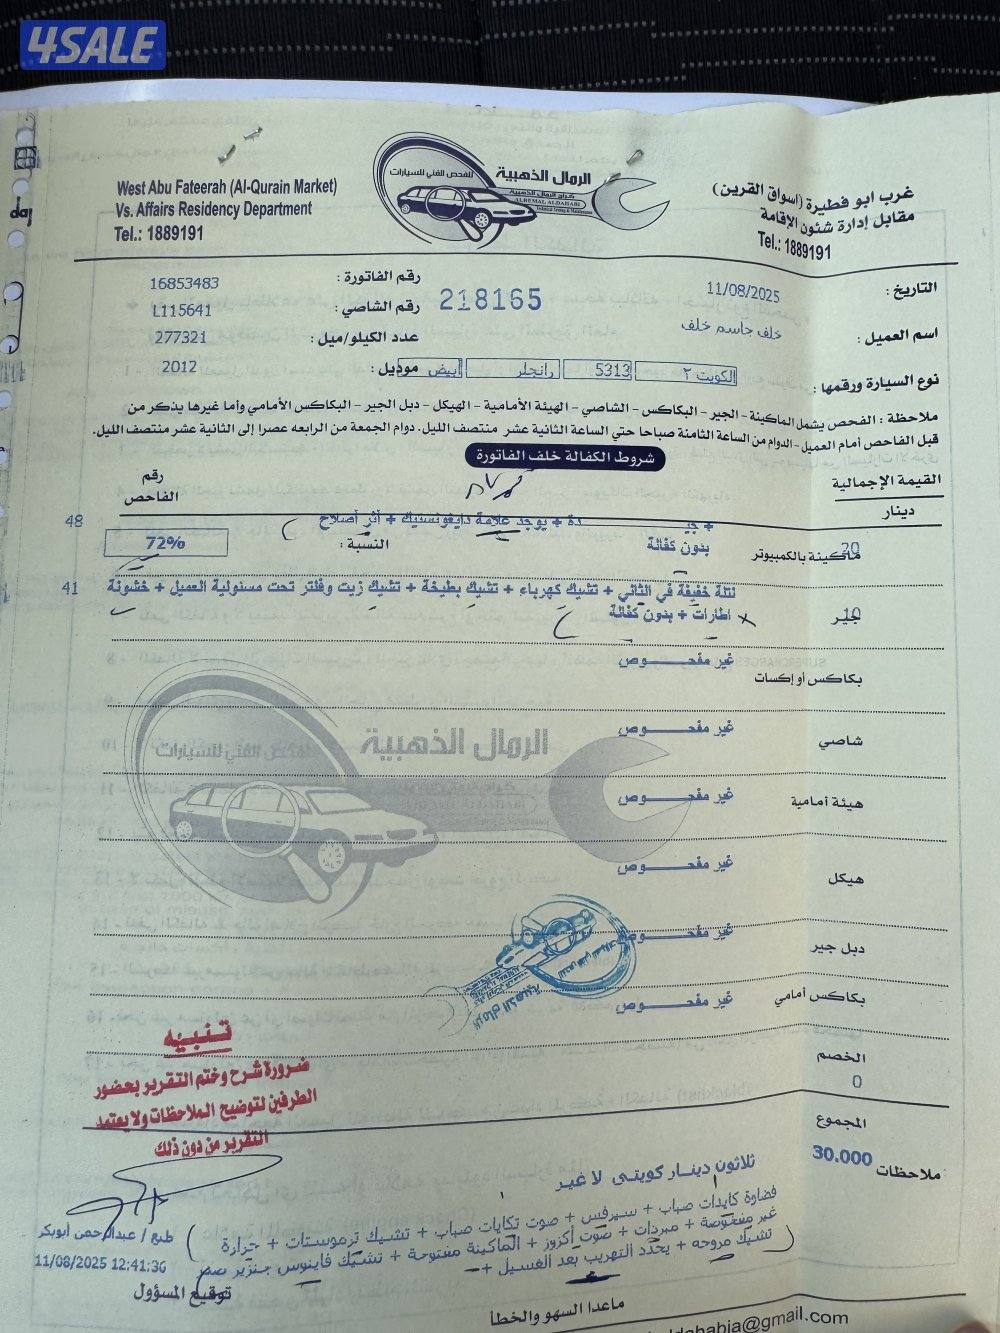 4SALE
West Abu Fateerah (Al-Qurain Market)
Vs. Affairs Residency Department
Tel.: 1889191
للفحص الفني للسيارات
الرمال الذهبية
ALREMAL ALDAHABI
غرب ابو فطيرة (اسواق القرين)
مقابل إدارة شئون الإقامة
Tel.: 1889191
التاريخ : 11/08/2025
218165
رقم الفاتورة : 16853483
رقم الشاصي : L115641
اسم العميل : خلف جاسم خلف
عدد الكيلو/ميل : 277321
نوع السيارة ورقمها : الكويت ٢ 5313 رانجلر أبيض
موديل : 2012
ملاحظة : الفحص يشمل الماكينة - الجير - البكاكس - الشاصي - الهيئة الأمامية - الهيكل - دبل الجير - البكاكس الأمامي وأما غيرها يذكر من
قبل الفاحص أمام العميل - الدوام من الساعة الثامنة صباحا حتي الساعة الثانية عشر منتصف الليل. دوام الجمعة من الرابعه عصرا إلى الثانية عشر منتصف الليل.
شروط الكفالة خلف الفاتورة
القيمة الإجمالية
دينار
رقم
الفاحص
+ جيـــدة + يوجد علامة دايغونستيك + أثر أصلاح
48
20
ماكينة بالكمبيوتر
بدون كفالة
النسبة :
72%
نتلة خفيفة في الثاني + تشيك كهرباء + تشيك بطيخة + تشيك زيت وفلتر تحت مسئولية العميل + خشونة
41
10
جير
اطارات + بدون كفالة
غير مفحـــوص
بكاكس أو إكسات
غير مفحـــوص
شاصي
غير مفحـــوص
هيئة أمامية
غير مفحـــوص
هيكل
غير مفحـــوص
دبل جير
غير مفحـــوص
بكاكس أمامي
الرمال الذهبية
للفحص الفني للسيارات
الرمال الذهبية
الخصم
0
المجموع
30.000
تنبيه
ضرورة شرح وختم التقرير بحضور
الطرفين لتوضيح الملاحظات ولا يعتمد
التقرير من دون ذلك
ملاحظات
ثلاثون دينار كويتى لا غير
فضاوة كايدات صباب + سيرفس + صوت تكايات صباب + تشيك ترموستات + حرارة
غير مفحوصة + مبردات + صوت أكزوز + الماكينة مفتوحة + تشيك فاينوس جنزير صدر
تشيك مروحه + يحدد التهريب بعد الغسيل +
طبع / عبدالرحمن أبوبكر
11/08/2025 12:41:36
توقيع المسؤول
ماعدا السهو والخطأ
@gmail.com